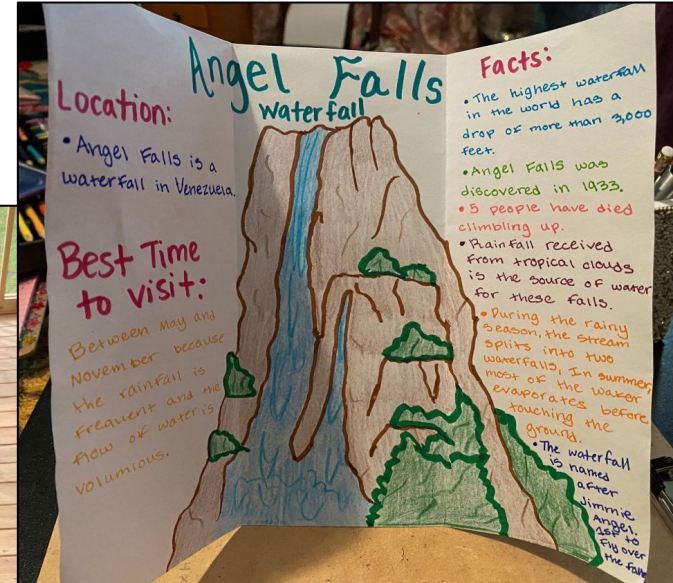 Angel Falls
waterfall
Location:
• Angel Falls is a
waterfall in Venezuela.
Best Time
to visit:
Between May and
November because
the rainfall is
frequent and the
flow of water is
volumious.
Facts:
• The highest waterfall
in the world has a
drop of more than 3,000
feet.
• Angel Falls was
discovered in 1933.
• 5 people have died
climbling up.
• Rainfall received
from tropical clouds
is the source of water
for these falls.
• During the rainy
season, the stream
splits into two
waterfalls, In summer,
most of the water
evaporates before
touching the
ground.
• The waterfall
is named
after
Jimmie
Angel.
1st to
Fly over
the falls